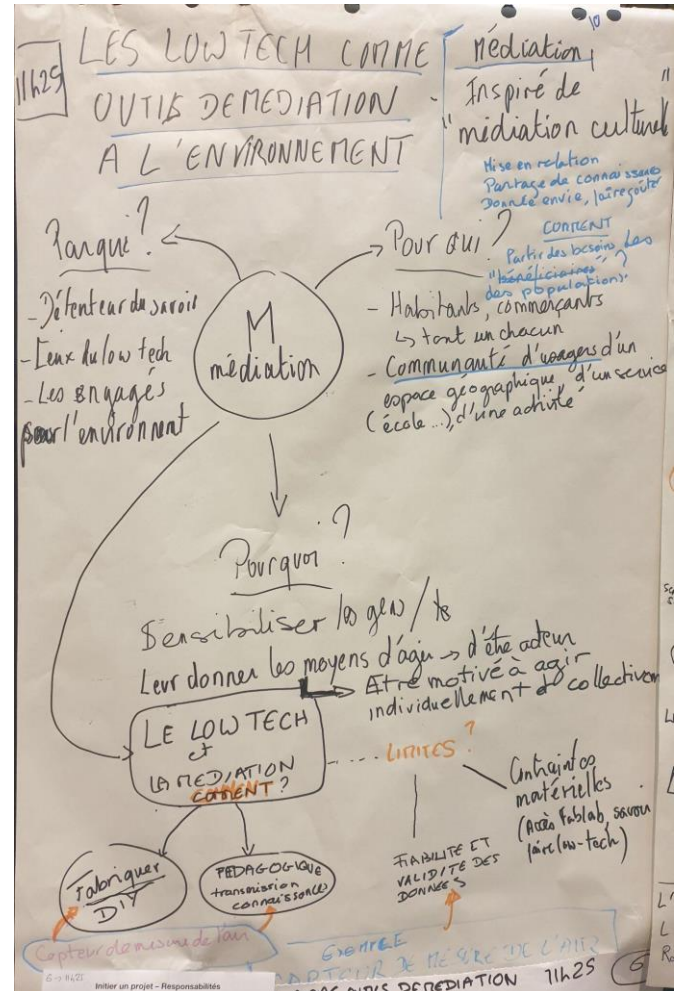 11h25
LES LOW TECH COMME
OUTILS DE MEDIATION
A L'ENVIRONNEMENT
10
Médiation
Inspiré de
"médiation culturelle"
Mise en relation
Partage de connaissances
Donner envie, faire goûter
Par qui ?
- Détenteur du savoir
- Ceux du low tech
- Les engagés
pour l'environnent
M
médiation
Pour qui ?
COMMENT
Partir des besoins, des
"bénéficiaires" ?
des populations.
- Habitants, commerçants
↳ tout un chacun
- Communauté d'usagers d'un
espace géographique, d'un service
(école...), d'une activité
Pourquoi ?
Sensibiliser les gens /
Leur donner les moyens d'agir → d'être acteur
Etre motivé à agir
individuellement et collectivem
LE LOW TECH
et
LA MEDIATION
COMMENT ?
LIMITES ?
Contraintes
matérielles
(Accès Fablab, savoir
faire low-tech)
FIABILITE ET
VALIDITE DES
DONNEES
Fabriquer
DIY
PEDAGOGIQUE
transmission
connaissance(s)
Capteur de mesure de l'air
EXEMPLE
CAPTEUR DE MESURE DE L'AIR
G → 11h25
Initier un projet – Responsabilités
DE MEDIATION 11h25
6